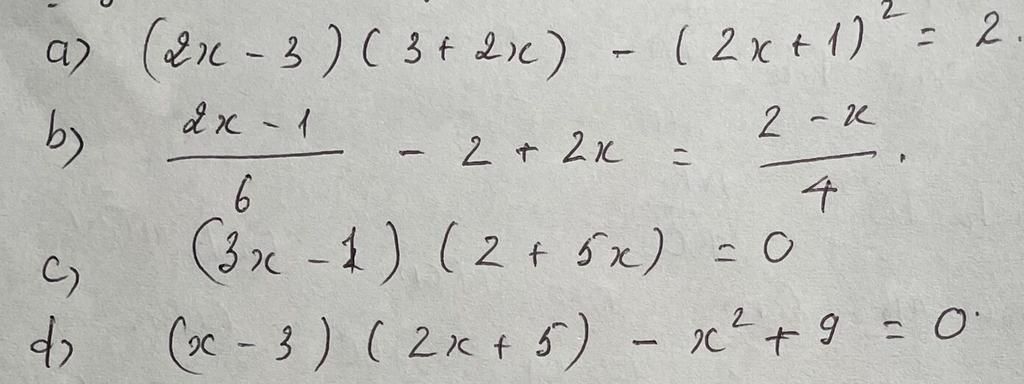 a) (2x - 3)(3 + 2x) - (2x + 1)² = 2.
b) \frac{2x - 1}{6} - 2 + 2x = \frac{2 - x}{4}.
c) (3x - 1)(2 + 5x) = 0
d) (x - 3)(2x + 5) - x² + 9 = 0.